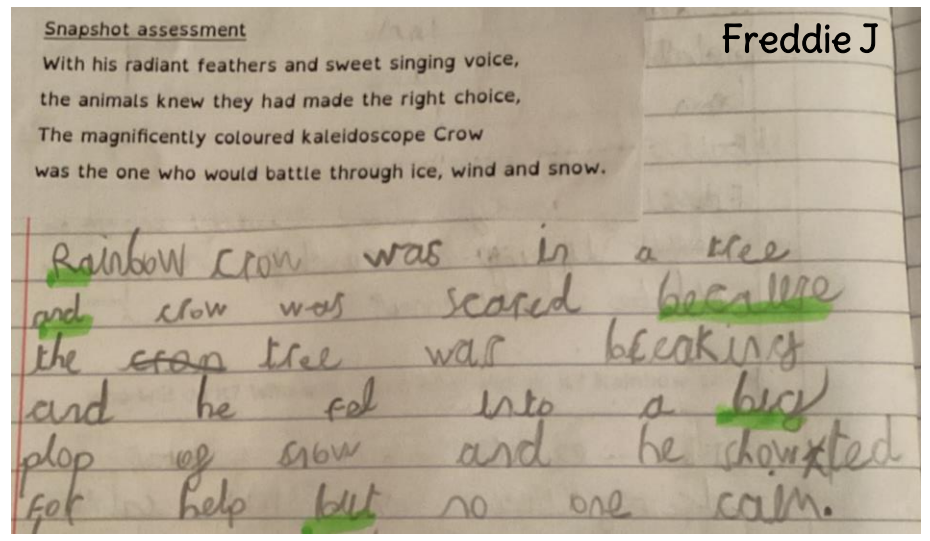 Snapshot assessment
Freddie J
With his radiant feathers and sweet singing voice,
the animals knew they had made the right choice,
The magnificently coloured kaleidoscope Crow
was the one who would battle through ice, wind and snow.
Rainbow crow was in a tree
and crow was scared becaure
the cran tree was breaking
and he fel into a big
plop of snow and he showted
for help but no one caim.